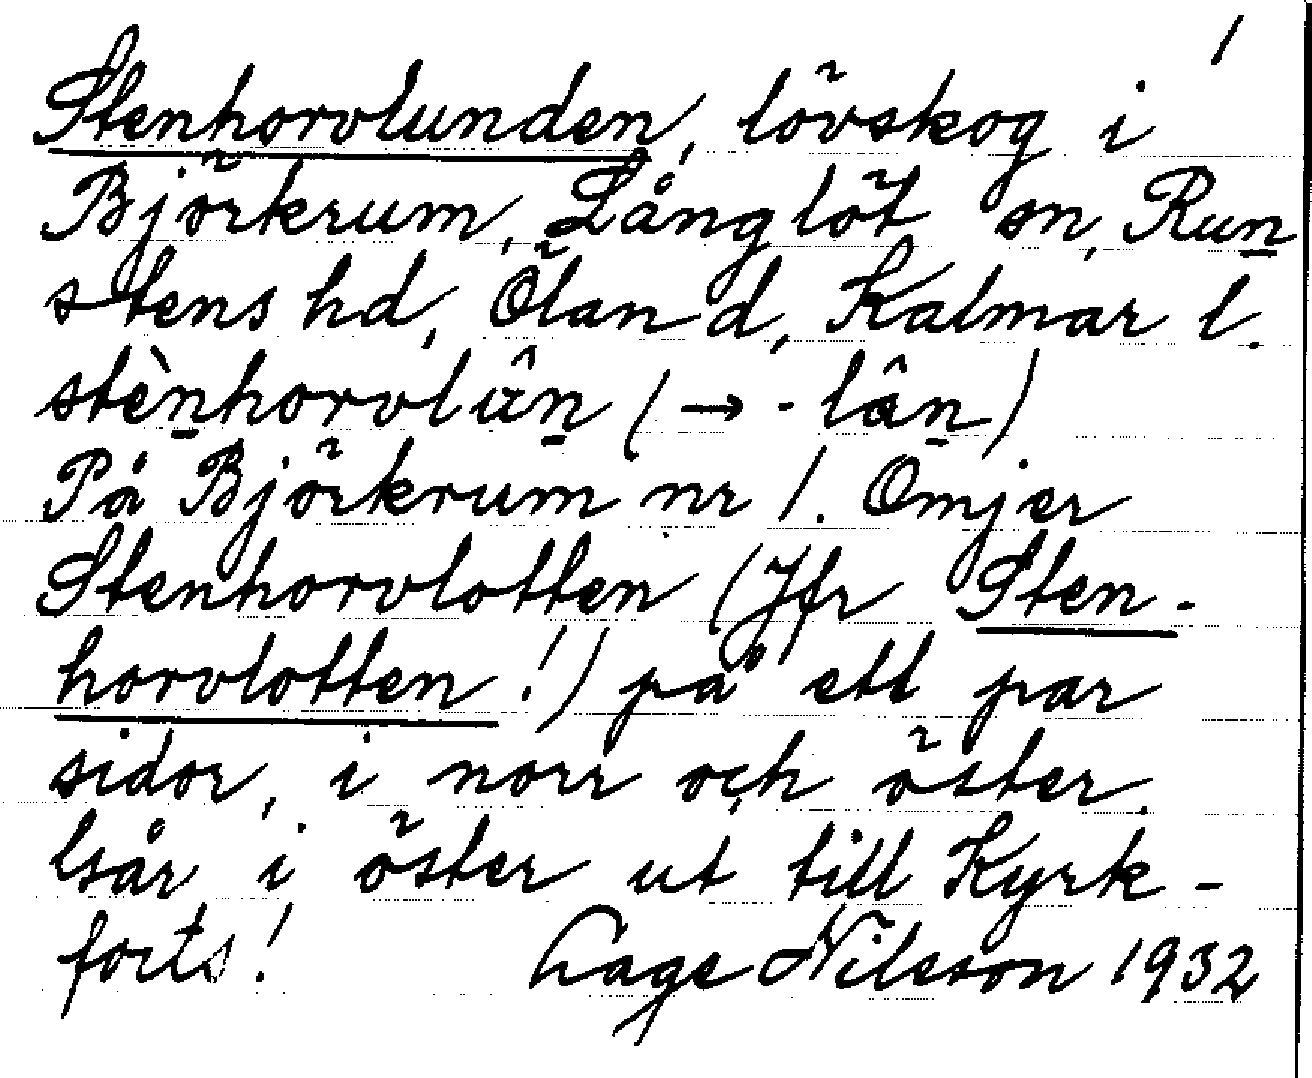 1
Stenhorvlunden, lövskog i
Björkrum, Långlöt sn, Run
stens hd, Öland, Kalmar l.
(→ - lân)
På Björkrum nr 1. Omjer
Stenhorvlotten (Jfr Sten-
horvlotten!) på ett par
sidor, i norr och öster.
går i öster ut till Kyrk-
forts! Hage Nilsson 1932